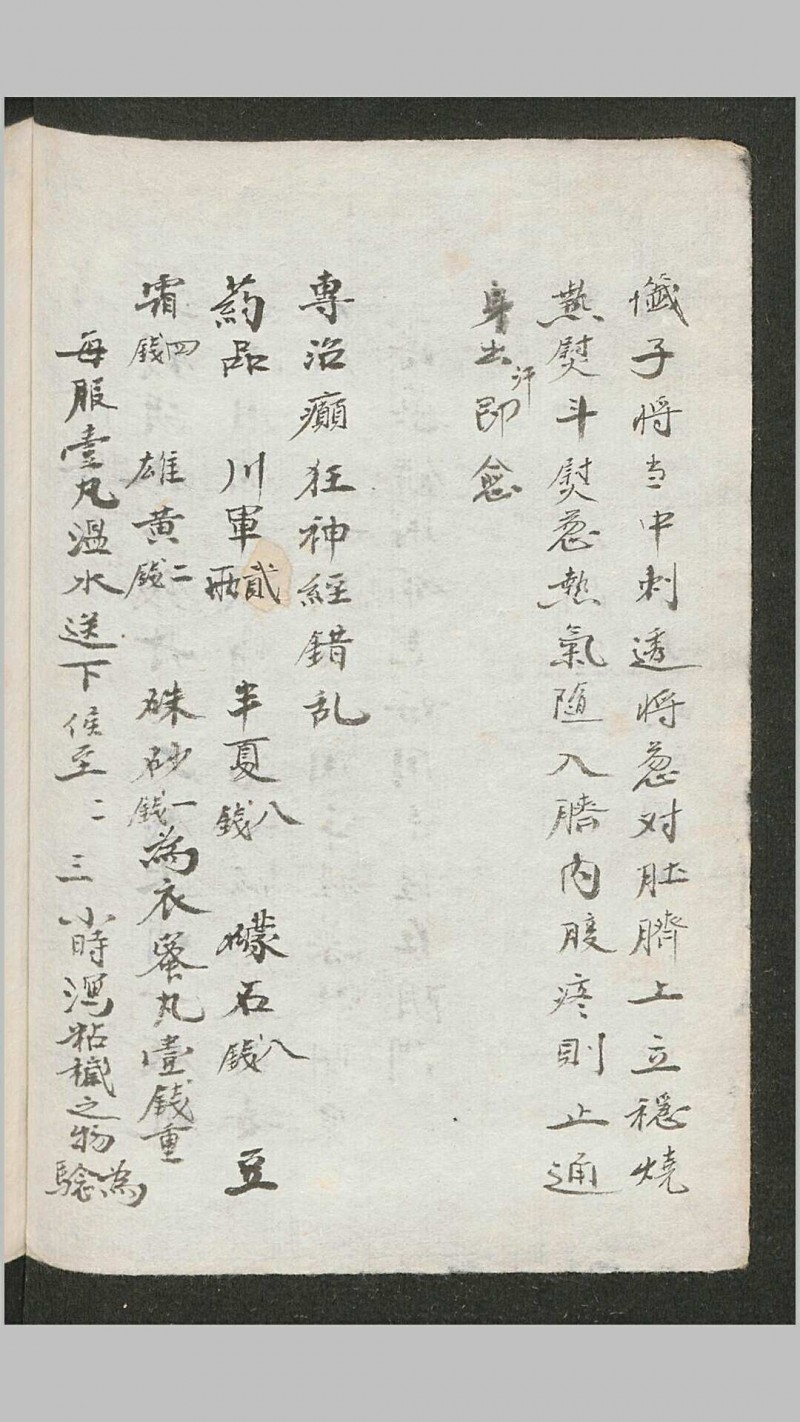 懺子將当中刺透將葱对肚臍上立穩燒
热熨斗熨葱熱氣隨入臍内腹疼則止通
身出汗即愈
專治癲狂神經錯乱
药品 川軍貳兩 半夏八錢 礞石八錢 豆
霜四錢 雄黄二錢 硃砂一錢為衣蜜丸壹錢重
每服壹丸溫水送下候至二三小時瀉粘穢之物為驗